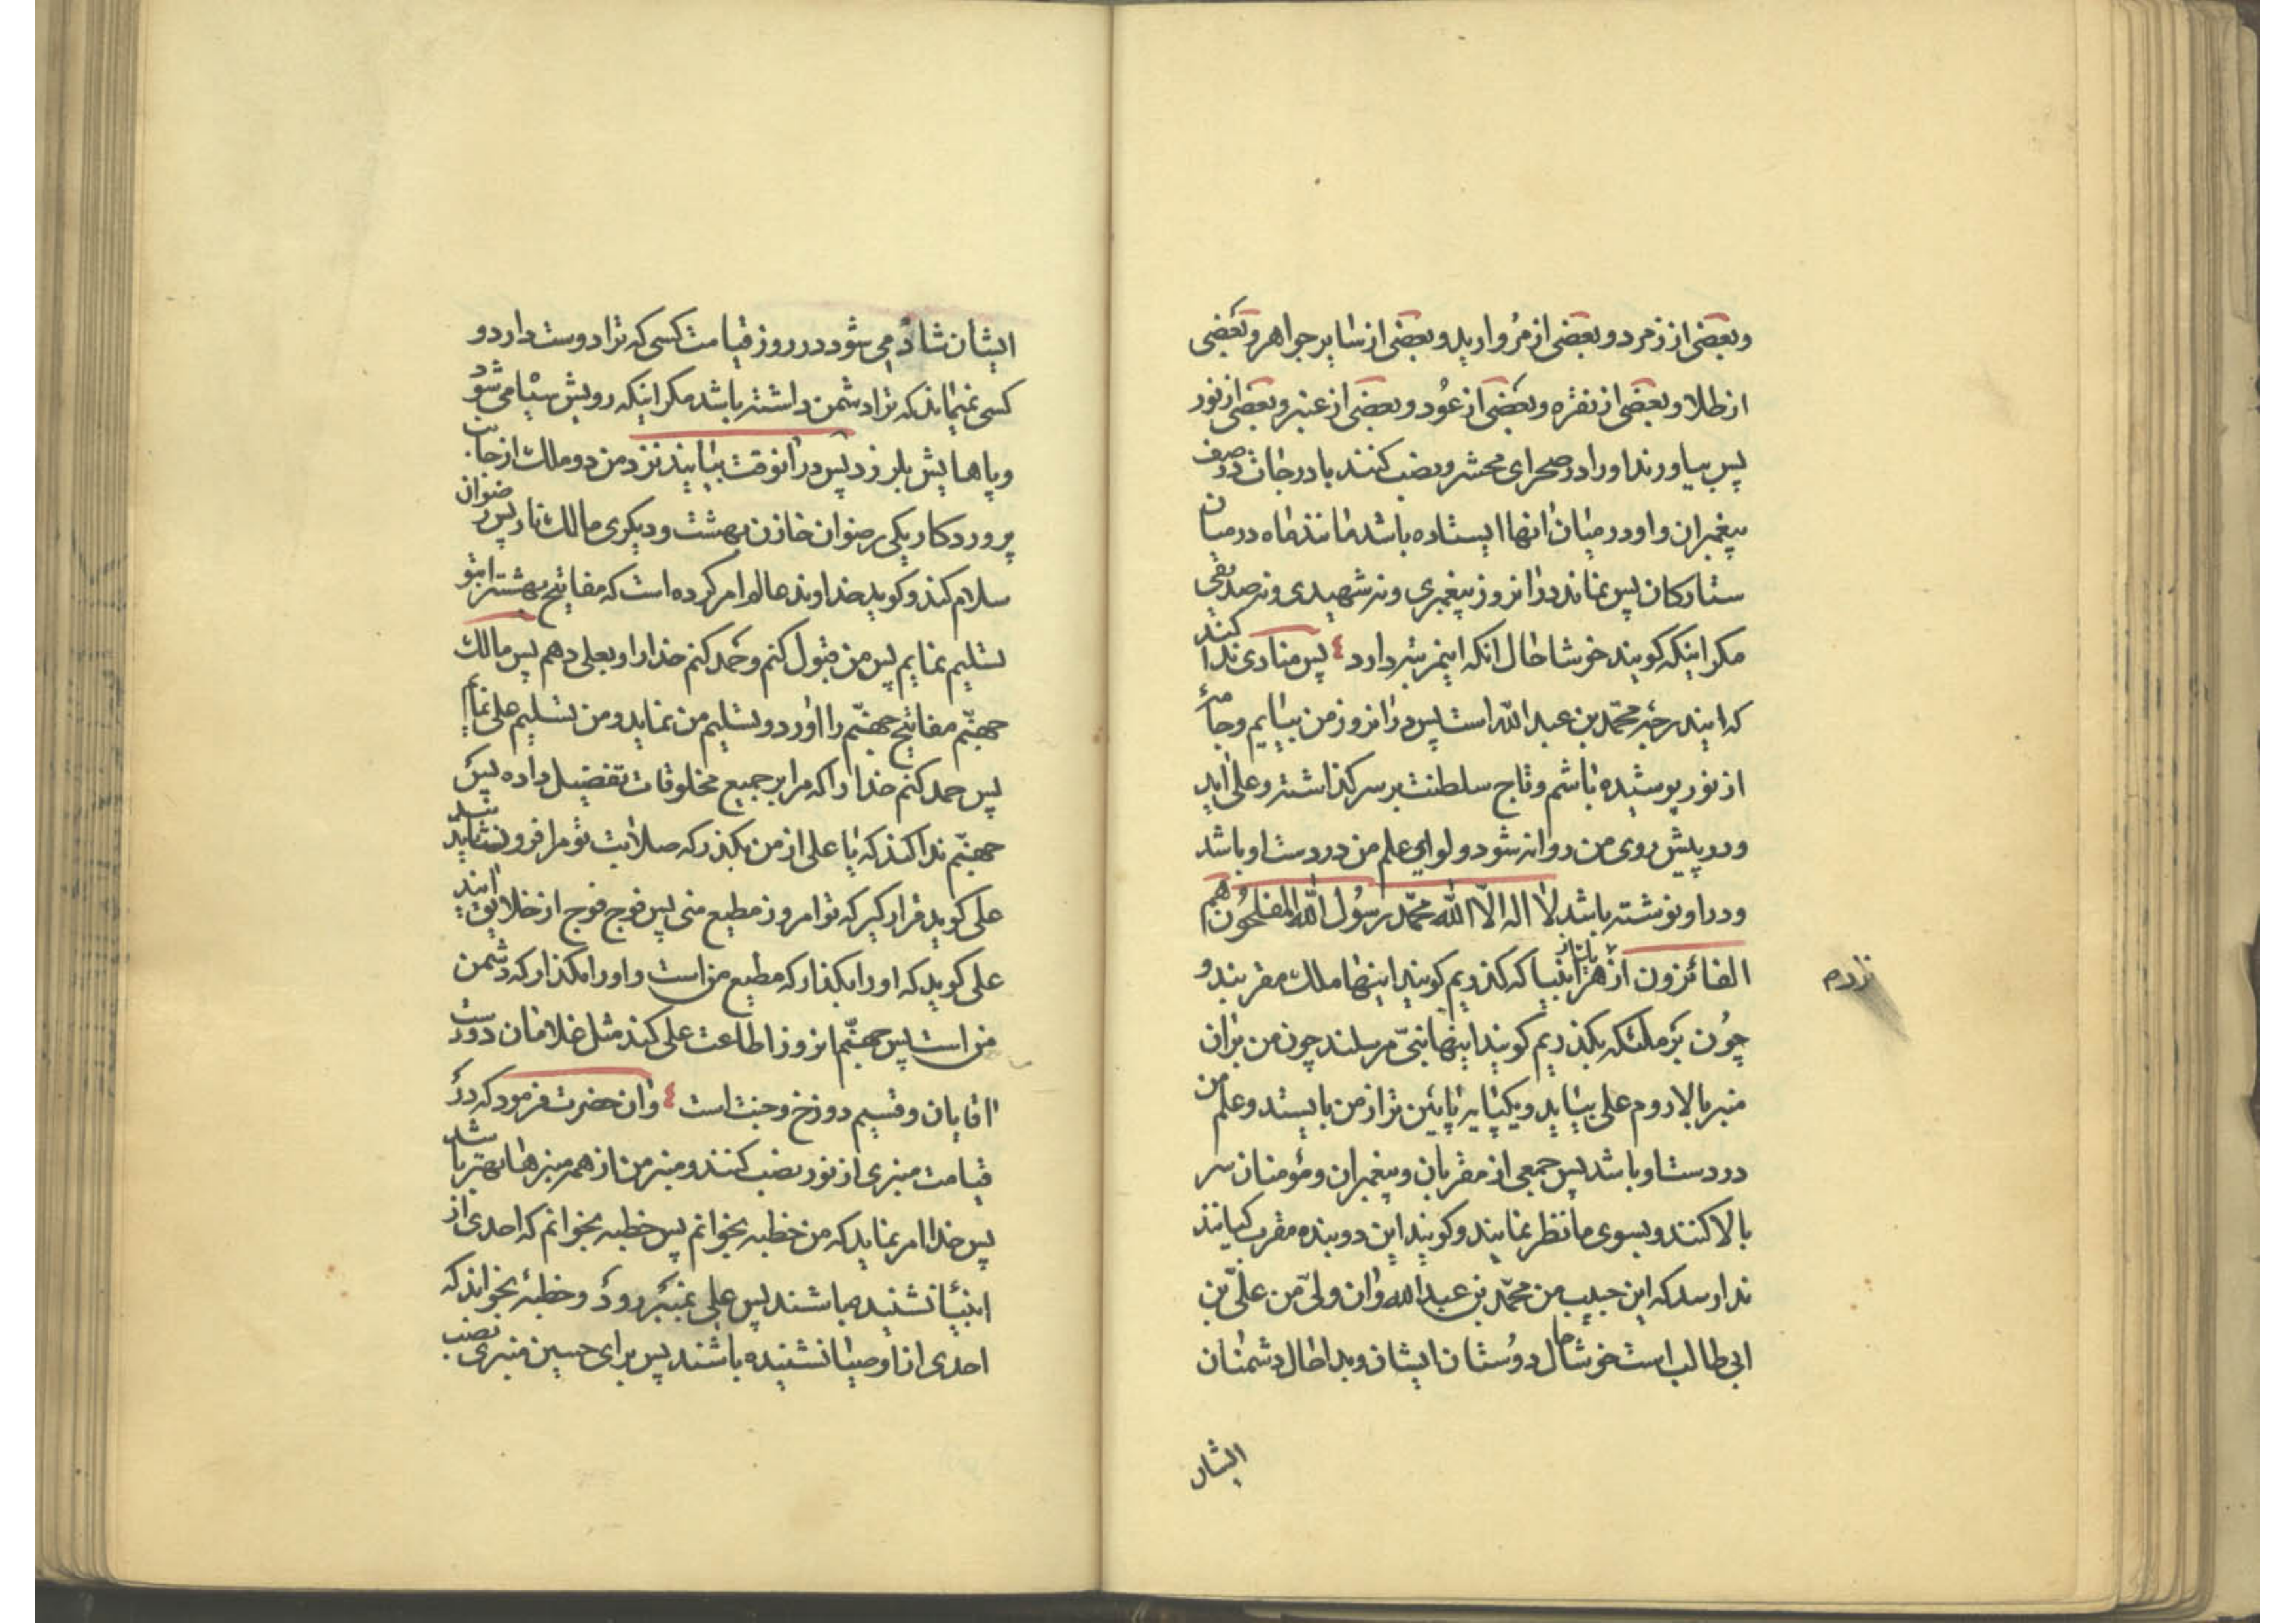 وبعضی از زمرد و بعضی از مروارید و بعضی از سایر جواهر و بعضی
از طلا و بعضی از نقره و بعضی از عود و بعضی از عنبر و بعضی از نور
پس بیاورند او را در صحرای محشر و نصب کنند با درجات در صف
پیغمبران و او در میان انها ایستاده باشد مانند ماه در میان
ستارکان پس نماند در انروز پیغمبری و نه شهیدی و نه صدیقی
مکر اینکه کویند خوشا حال انکه اینمرتبه دارد ٤ پس منادی ندا کند
که ایندرجه محمد بن عبد الله است پس در انروز من بیایم و جامهٔ
از نور پوشیده باشم و تاج سلطنت بر سر کذاشته و علی اید
و در پیش روی من روانه شود و لوای علم من در دست او باشد
و در او نوشته باشد لا اله الّا الله محمّد رسُول الله المفلحُون هم
الفائزون از هر انبیا که کذریم کویند اینها ملک مقربند و
چُون بر ملئکه بکذریم کویند اینها نبّی مرسلند چون من بران
منبر بالا روم علی بیاید و یکپایه پایئن تر از من بایستد و علم من
در دست او باشد پس جمعی از مقربان و پیغمبران و مؤمنان سر
بالا کنند و بسوی ما نظر نمایند و کویند این دو بنده مقرب کیانند
ندا رسد که این حبیب من محمّد بن عبد الله و ان ولیّ من علیّ بن
ابی طالب است خوشا حال دوُستان ایشان و بدا حال دشمنان
ایشان
ایشان شاد می شود در روز قیامت کسی که ترا دوست دارد و
کسی نمیماند که ترا دشمن داشته باشد مکر اینکه رویش سیاه می شود
و پاهایش بلرزد پس در انوقت بیایند نزد من دو ملک از جانب
پروردکار یکی رضوان خازن بهشت و دیکری مالک نار پس رضوان
سلام کند و کوید خداوند عالم امر کرده است که مفاتیح بهشترا بتو
تسلیم نمایم پس من قبول کنم و حمد کنم خدا را و بعلی دهم پس مالک
جهنّم مفاتیح جهنّم را اورد و تسلیم من نماید و من تسلیم علی نمایم
پس حمد کنم خدا را که مرا بر جمیع مخلوقات تفضیل داده پس
جهنّم ندا کند که یا علی از من بکذر که صلابت تو مرا فرو نشانید
علی کوید قرار کیر که تو امروز مطیع منی پس فوج فوج از خلایق ایند
علی کوید که او را بکذار که مطیع من است و او را مکذار که دشمن
من است پس جهنّم انروز اطاعت علی کند مثل غلامان دوست
اقایان و قسیم دوزخ و جنت است ٤ و ان حضرت فرمود که در
قیامت منبری از نور نصب کنند و منبر من از همه منبرها بهتر باشد
پس خدا امر نماید که من خطبه بخوانم پس خطبه بخوانم که احدی از
انبیا نشنیده باشند پس علی بمنبر رود و خطبهٔ بخواند که
احدی از اوصیا نشنیده باشند پس برای حسین منبری نصب